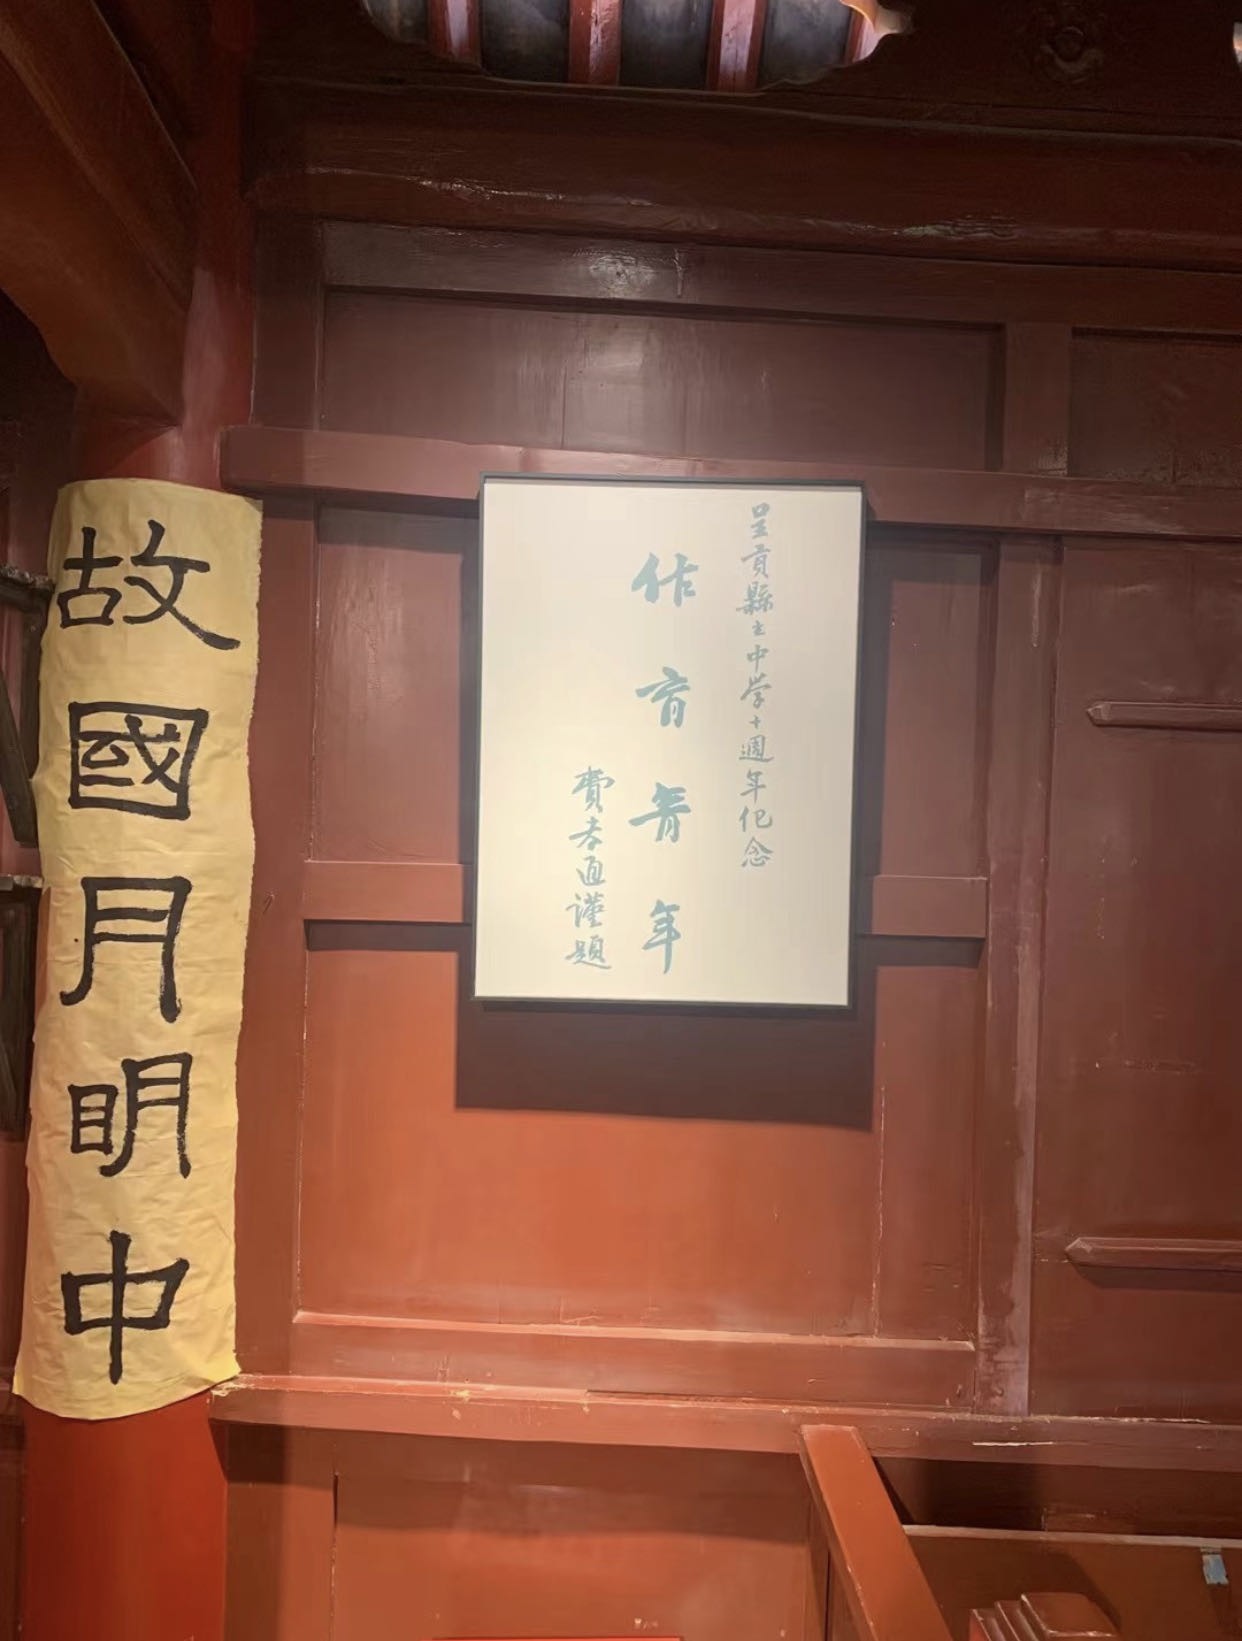 呈貢縣立中学十週年纪念
作育青年
費孝通謹題
故國月明中